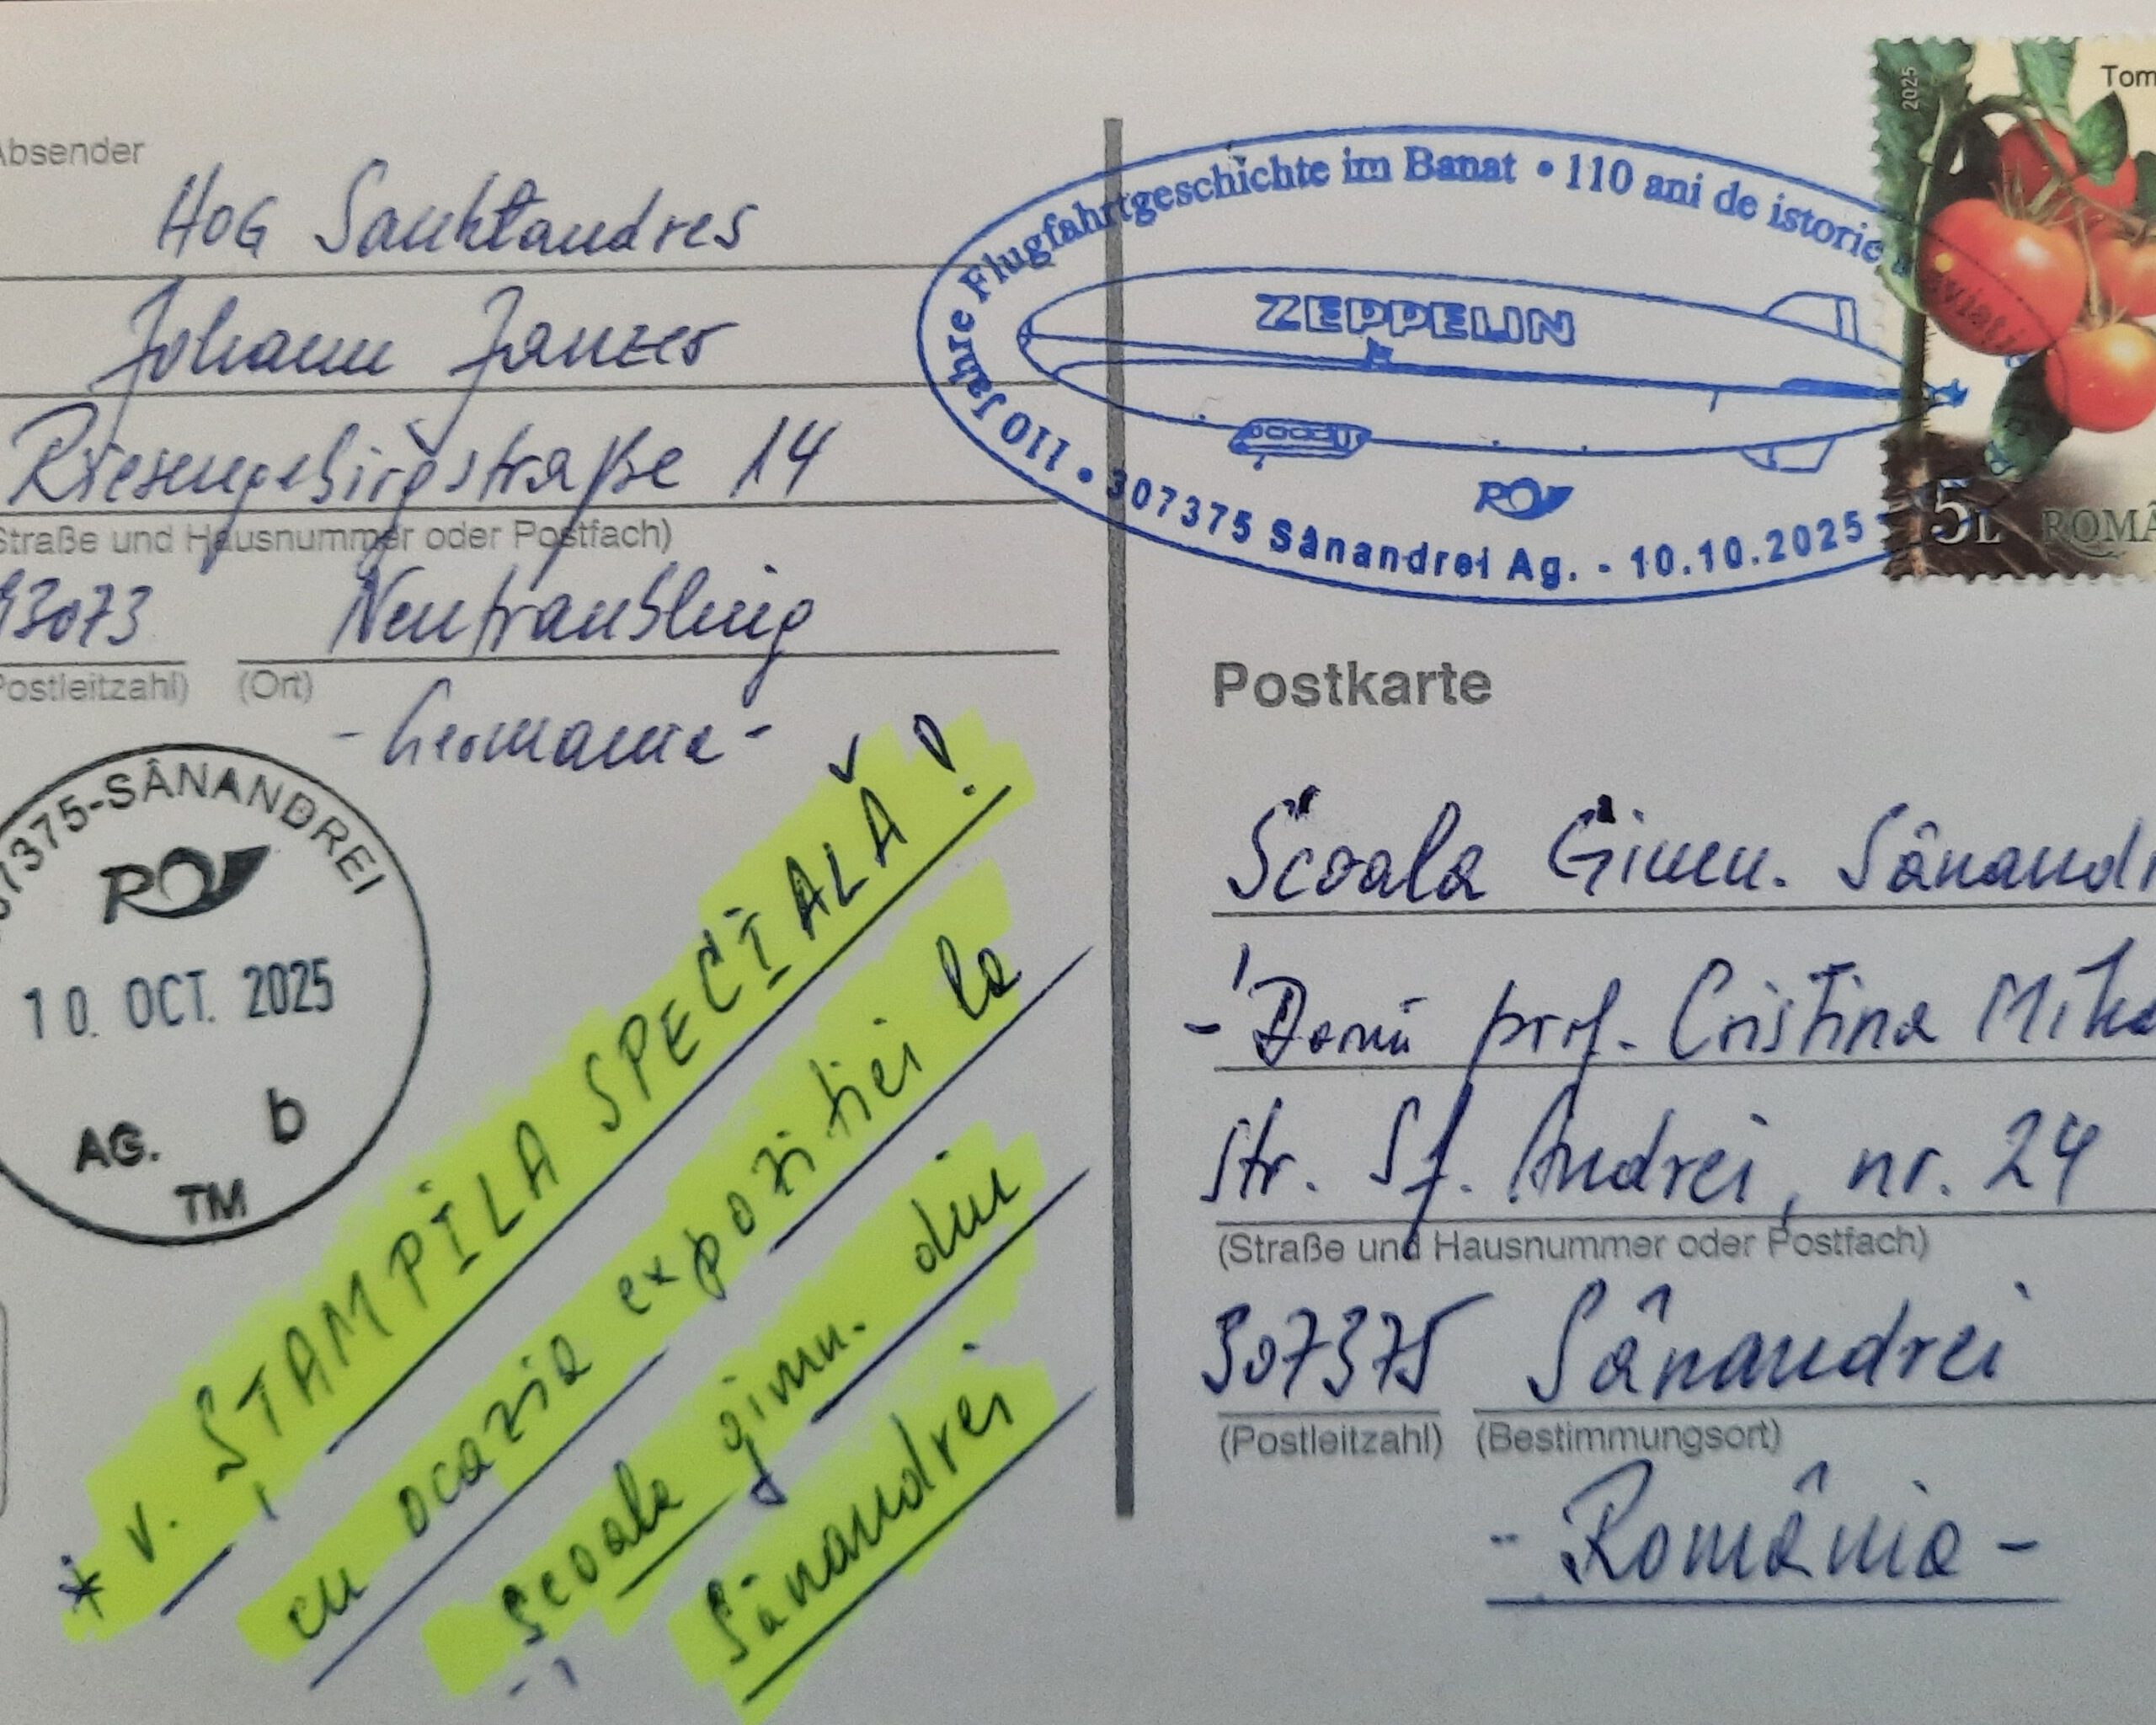 Absender
HOG Sankt Andres
Johann Janzer
Riesengebirgstraße 14
(Straße und Hausnummer oder Postfach)
93073 Neutraubling
Postleitzahl) (Ort)
- Germania -
307375-SÂNANDREI
10. OCT. 2025
AG. b
TM
* v. ȘTAMPILA SPECIALĂ!
cu ocazia expoziției la
Școala gimn. din
Sânandrei
110 Jahre Flugfahrtgeschichte im Banat • 110 ani de istorie
ZEPPELIN
• 307375 Sânandrei Ag. - 10.10.2025
2025
Tom
5L ROMÂ
Postkarte
Școala Gimn. Sânandr
- Domn prof. Cristina
str. Sf. Andrei, nr. 24
(Straße und Hausnummer oder Postfach)
307375 Sânandrei
(Postleitzahl) (Bestimmungsort)
- România -